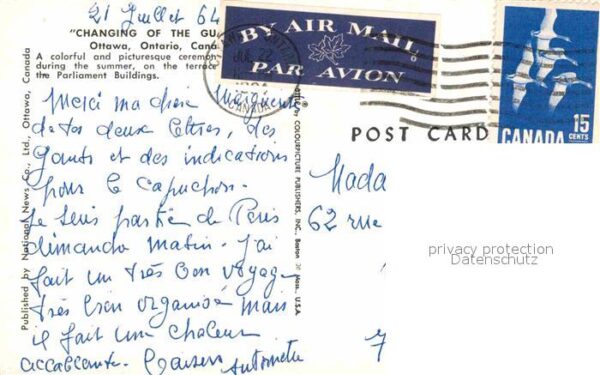 21 Juillet 64
"CHANGING OF THE GU
Ottawa, Ontario, Cana
A colorful and picturesque ceremon
during the summer, on the terrace
the Parliament Buildings.
Merci ma chère
de tes deux lettres, des
gants et des indications
pour le capuchon.
Je suis partie de Paris
dimanche matin. J'ai
fait un très bon voyag
très bien organisé mais
il fait une chaleur
accablante. Baisers Antoinette
Published by National News Co., Ltd., Ottawa, Canada
by COLOURPICTURE PUBLISHERS, INC., Boston 30, Mass., U.S.A.
BY AIR MAIL
PAR AVION
JUL 22
CANADA
15 CENTS
CANADA
POST CARD
Mada
62 rue
7
privacy protection
Datenschutz